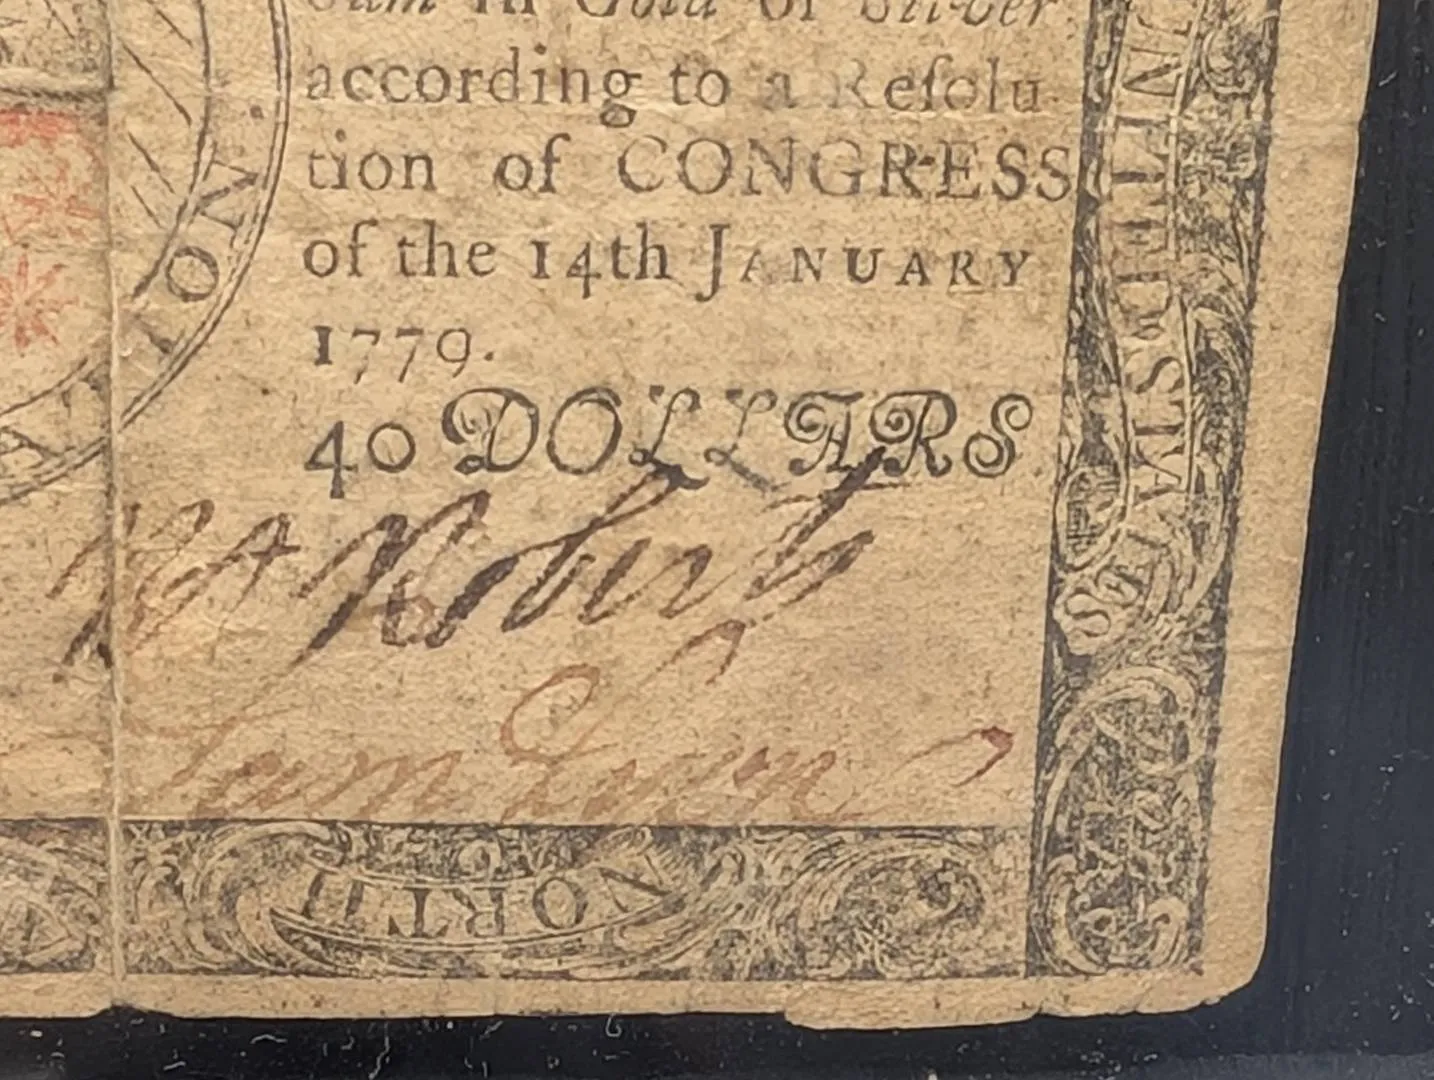 Sum in Gold or Silver
according to a Reſolu
tion of CONGRESS
of the 14th JANUARY
1779.
40 DOLLARS
Roberts
Sam
UNITED STATES
NORTH